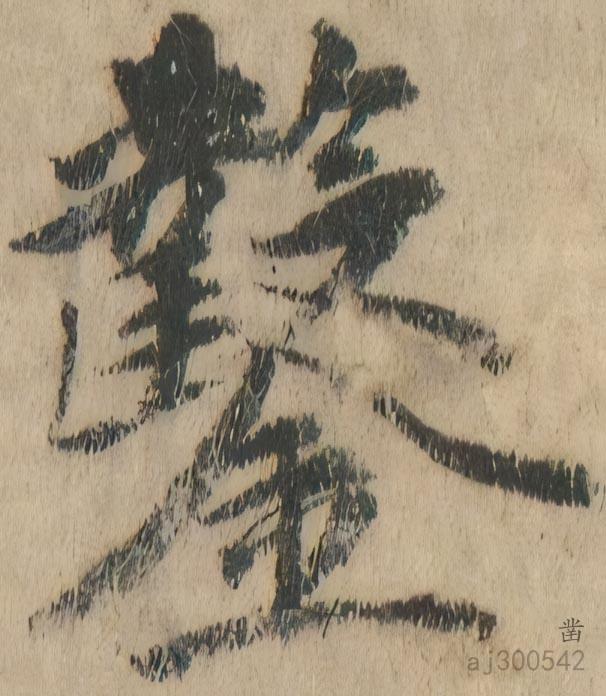 鑿
凿
aj300542